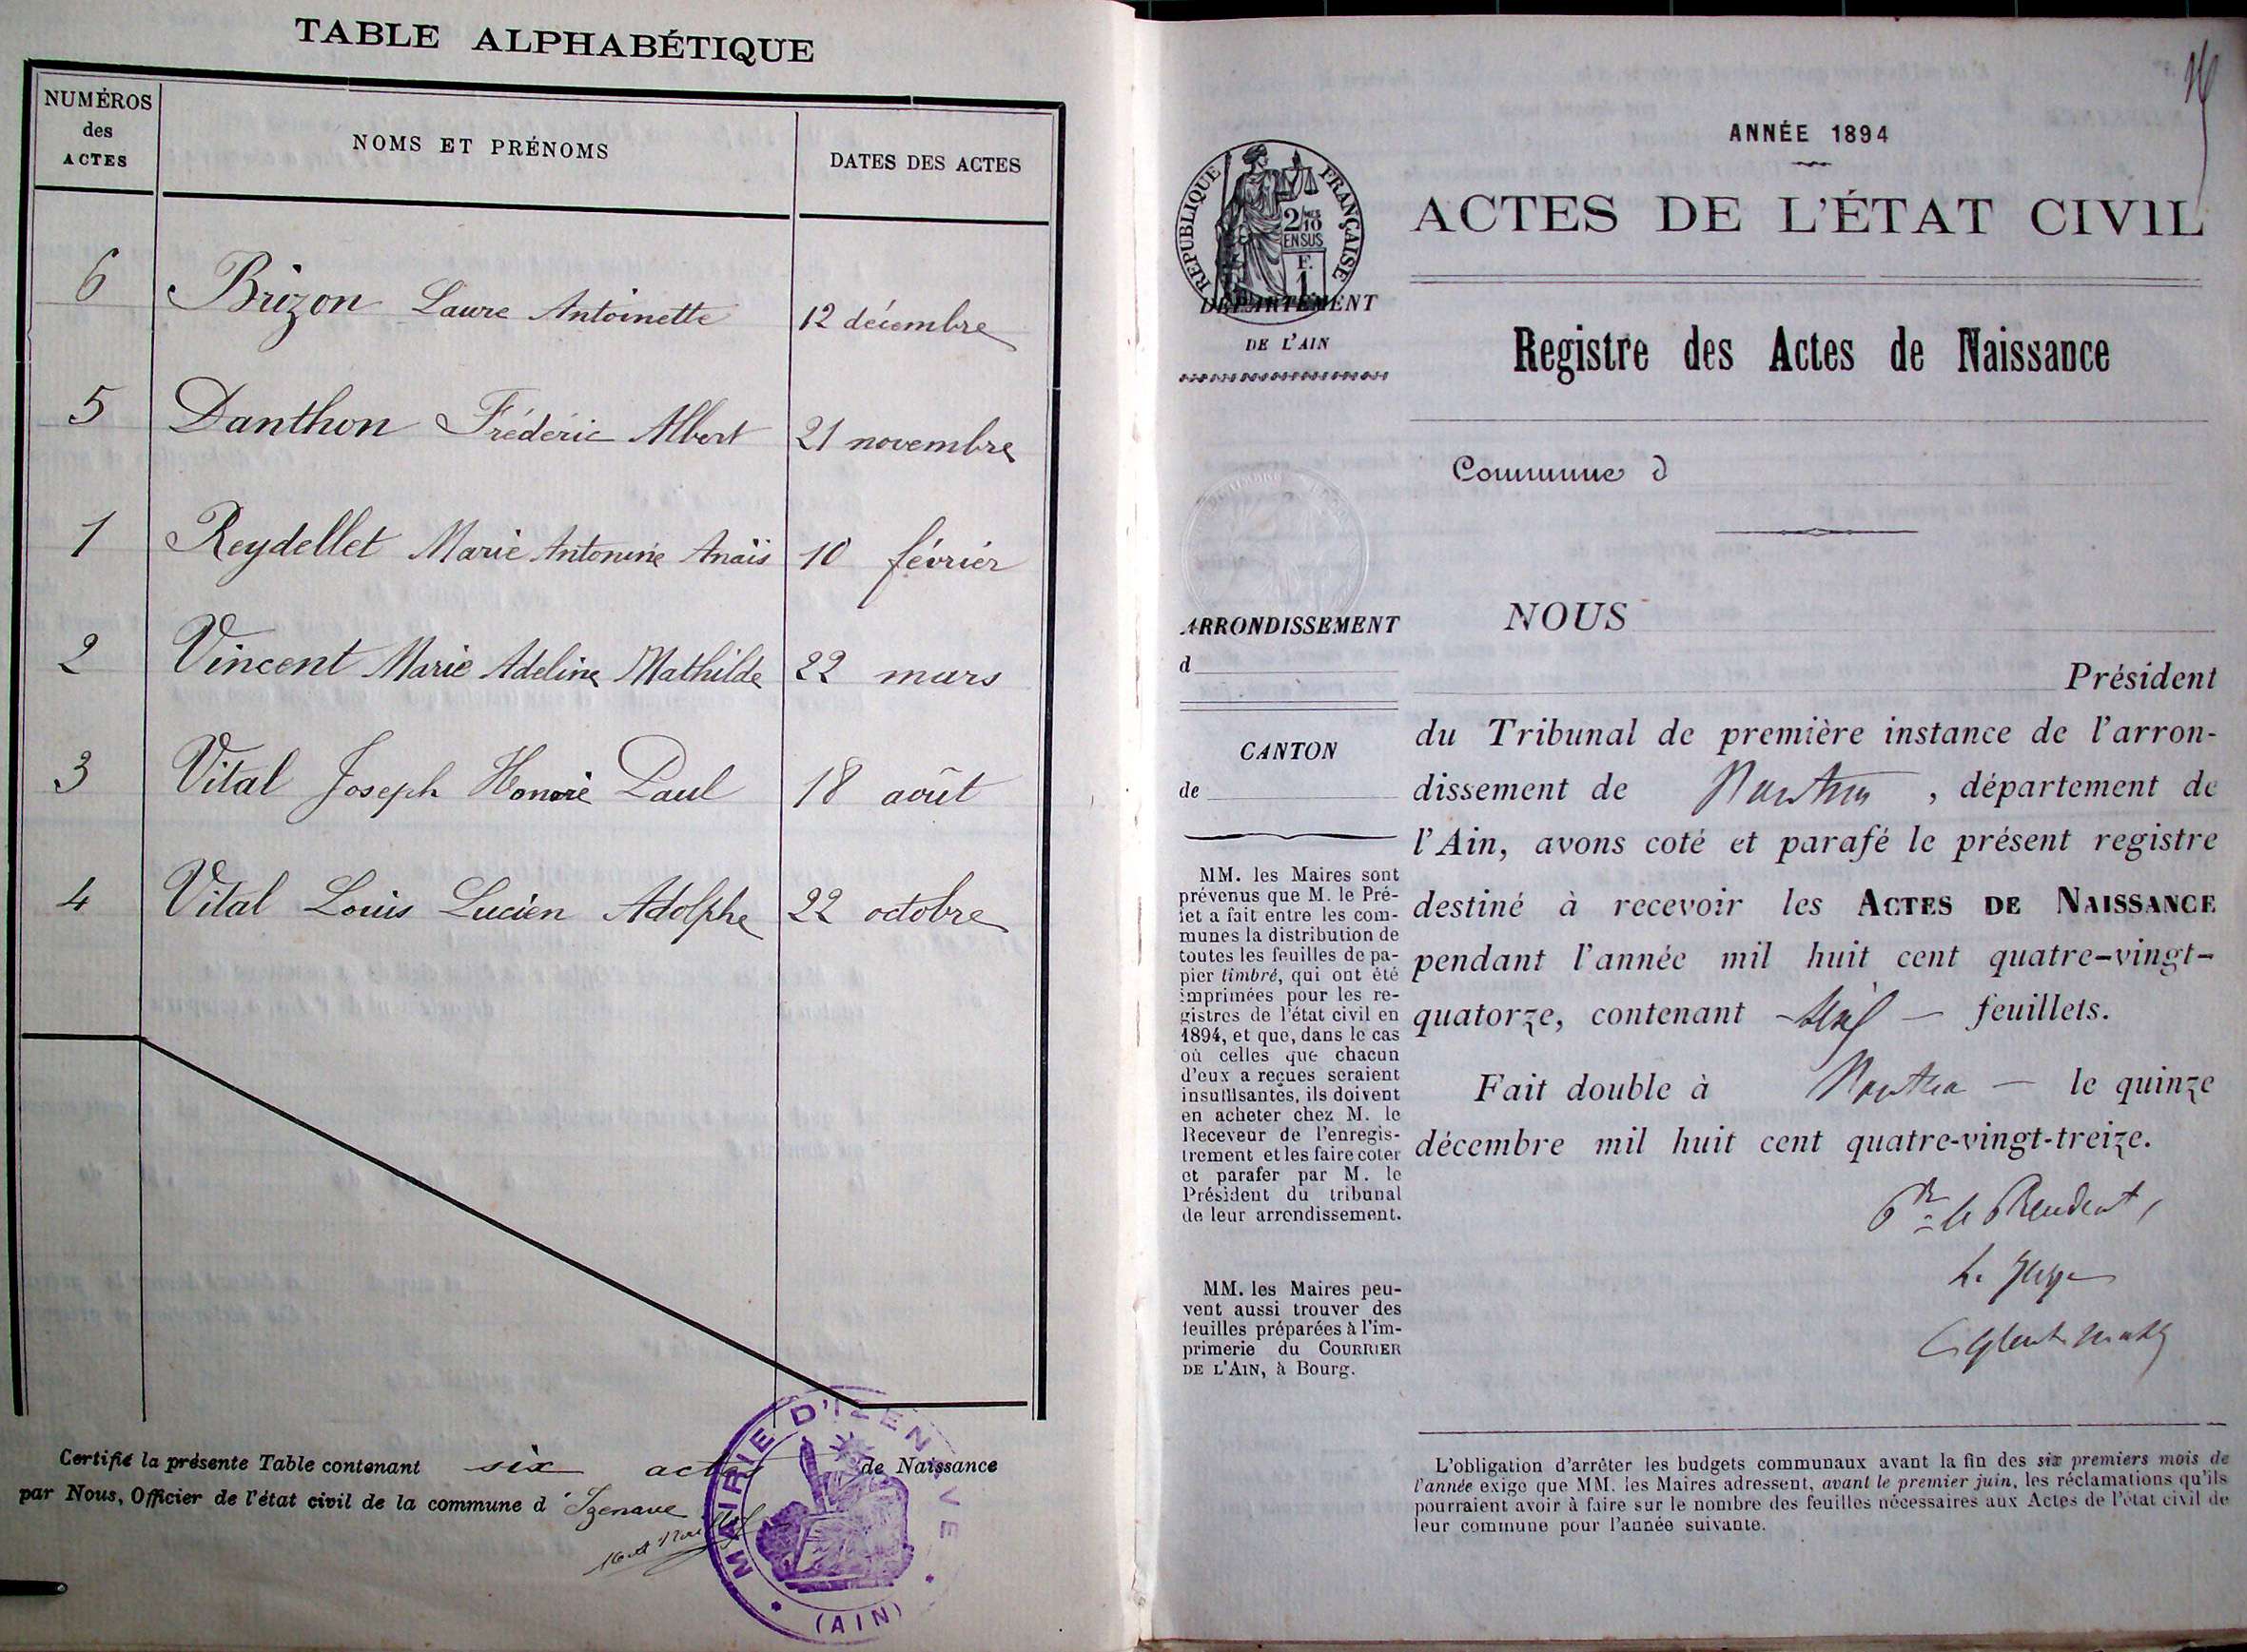 TABLE ALPHABÉTIQUE
NUMÉROS
des
ACTES
NOMS ET PRÉNOMS
DATES DES ACTES
6 Brizon Laure Antoinette 12 décembre
5 Danthon Frédéric Albert 21 novembre
1 Reydellet Marie Antonine Anaïs 10 février
2 Vincent Marie Adeline Mathilde 22 mars
3 Vital Joseph Honoré Paul 18 août
4 Vital Louis Lucien Adolphe 22 octobre
Certifié la présente Table contenant six actes de Naissance
par Nous, Officier de l'état civil de la commune d'Izenave
MAIRIE D'IZENAVE
(AIN)
ANNÉE 1894
ACTES DE L'ÉTAT CIVIL
RÉPUBLIQUE FRANÇAISE
2/10
EN SUS
F.
1
DÉPARTEMENT
DE L'AIN
Registre des Actes de Naissance
Commune d
ARRONDISSEMENT
d
CANTON
de
MM. les Maires sont
prévenus que M. le Pré-
fet a fait entre les com-
munes la distribution de
toutes les feuilles de pa-
pier timbré, qui ont été
imprimées pour les re-
gistres de l'état civil en
1894, et que, dans le cas
où celles que chacun
d'eux a reçues seraient
insuffisantes, ils doivent
en acheter chez M. le
Receveur de l'enregis-
trement et les faire coter
et parafer par M. le
Président du tribunal
de leur arrondissement.
MM. les Maires peu-
vent aussi trouver des
feuilles préparées à l'im-
primerie du COURRIER
DE L'AIN, à Bourg.
NOUS
Président
du Tribunal de première instance de l'arron-
dissement de Nantua, département de
l'Ain, avons coté et parafé le présent registre
destiné à recevoir les ACTES DE NAISSANCE
pendant l'année mil huit cent quatre-vingt-
quatorze, contenant feuillets.
Fait double à Nantua — le quinze
décembre mil huit cent quatre-vingt-treize.
Pr le Président,
Le Juge
L'obligation d'arrêter les budgets communaux avant la fin des six premiers mois de
l'année exige que MM. les Maires adressent, avant le premier juin, les réclamations qu'ils
pourraient avoir à faire sur le nombre des feuilles nécessaires aux Actes de l'état civil de
leur commune pour l'année suivante.